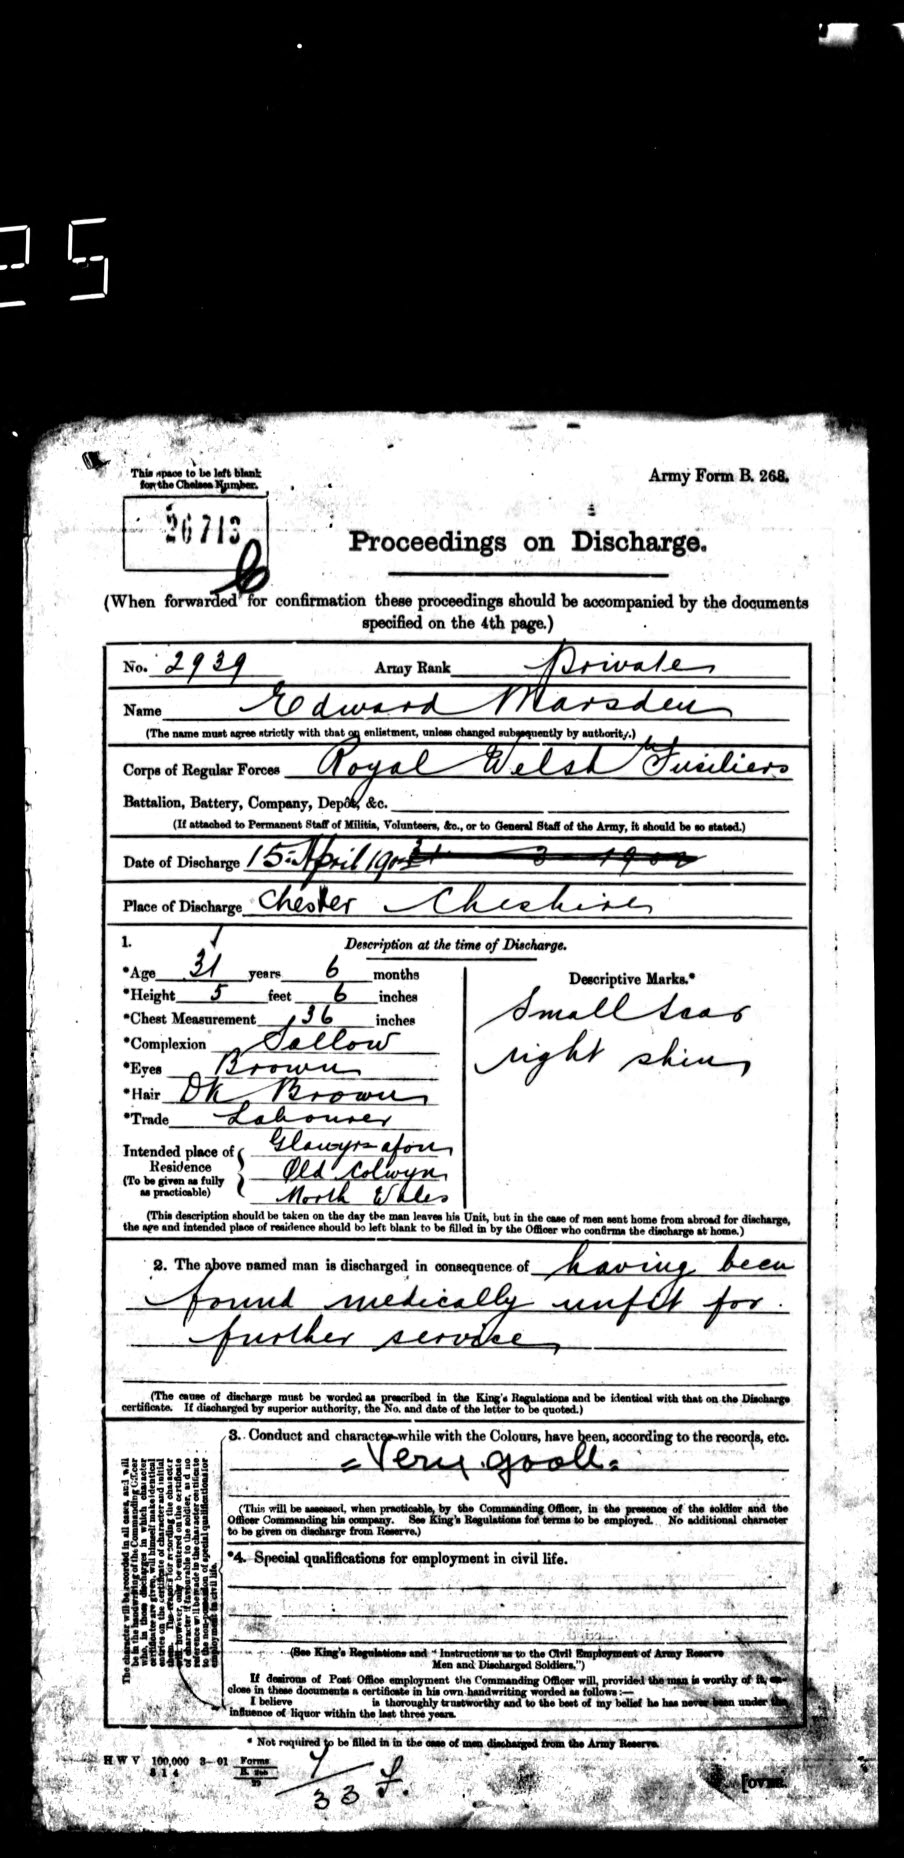 25
This space to be left blank
for the Chelsea Number.
Army Form B. 268.
26713
Proceedings on Discharge.
(When forwarded for confirmation these proceedings should be accompanied by the documents
specified on the 4th page.)
No. 2939 Army Rank Private
Name Edward Marsden
(The name must agree strictly with that on enlistment, unless changed subsequently by authority.)
Corps of Regular Forces Royal Welsh Fusiliers
Battalion, Battery, Company, Depôt, &c.
(If attached to Permanent Staff of Militia, Volunteers, &c., or to General Staff of the Army, it should be so stated.)
Date of Discharge 15th April 190
Place of Discharge Chester Cheshire
1. Description at the time of Discharge.
*Age 31 years 6 months
*Height 5 feet 6 inches
*Chest Measurement 36 inches
*Complexion Sallow
*Eyes Brown
*Hair Dk Brown
*Trade Labourer
Intended place of Residence
(To be given as fully as practicable)
Old Colwyn
North Wales
Descriptive Marks.*
Small scar
right shin
(This description should be taken on the day the man leaves his Unit, but in the case of men sent home from abroad for discharge,
the age and intended place of residence should be left blank to be filled in by the Officer who confirms the discharge at home.)
2. The above named man is discharged in consequence of having been
found medically unfit for
further service
(The cause of discharge must be worded as prescribed in the King's Regulations and be identical with that on the Discharge
certificate. If discharged by superior authority, the No. and date of the letter to be quoted.)
3. Conduct and character while with the Colours, have been, according to the records, etc.
= Very good =
(This will be assessed, when practicable, by the Commanding Officer, in the presence of the soldier and the
Officer Commanding his company. See King's Regulations for terms to be employed. No additional character
to be given on discharge from Reserve.)
*4. Special qualifications for employment in civil life.
(See King's Regulations and "Instructions as to the Civil Employment of Army Reserve
Men and Discharged Soldiers.")
If desirous of Post Office employment the Commanding Officer will, provided the man is worthy of it, en-
close in these documents a certificate in his own handwriting worded as follows:—
I believe is thoroughly trustworthy and to the best of my belief he has never been under the
influence of liquor within the last three years.
The character will be recorded in all cases, and will
be in the handwriting of the Commanding Officer
* Not required to be filled in in the case of men discharged from the Army Reserve.
H W V 100,000 3-01 Forms
33
[OVER.